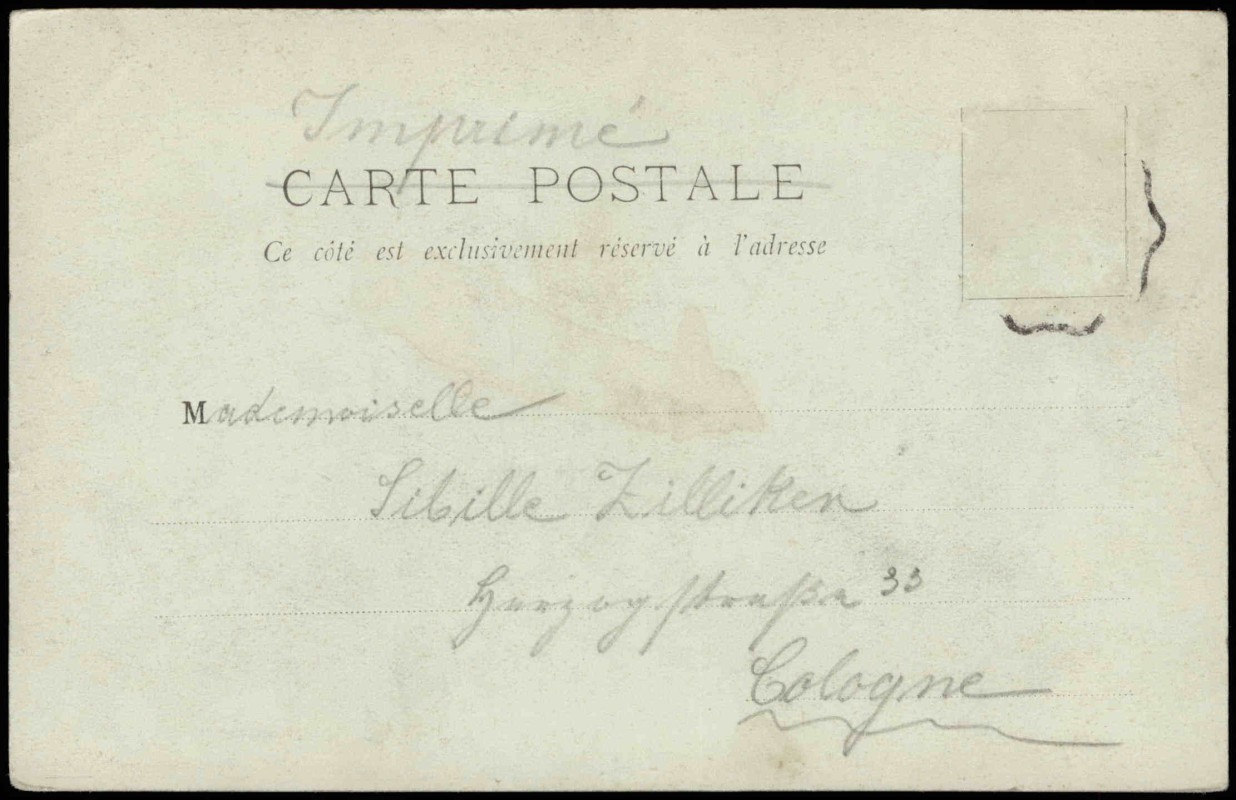 Imprimé
CARTE POSTALE
Ce côté est exclusivement réservé à l'adresse
Mademoiselle
Sibille Zilliken
Herzogstraße 33
Cologne